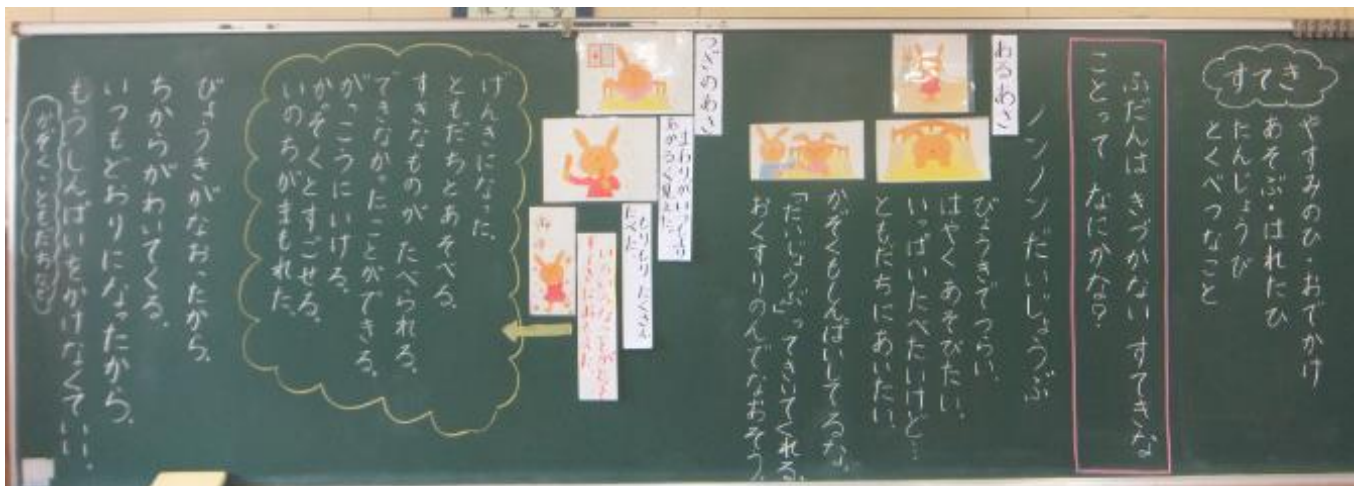 すてき
やすみのひ・おでかけ
あそぶ・はれたひ
たんじょうび
とくべつなこと
ふだんは きづかない すてきな
ことって なにかな？
ノンノンだいじょうぶ
あるあさ
びょうきでつらい。
はやくあそびたい。
いっぱいたべたいけど…
ともだちにあいたい。
かぞくもしんぱいしてるな。
「だいじょうぶ」ってきいてくれる。
おくすりのんでなおそう。
つぎのあさ
まわりがいつもより
あかるく見えた。
もりもりたくさん
たべた。
いろいろなことがとても
すてきにおもえた。
げんきになった。
ともだちとあそべる。
すきなものが たべられる。
できなかったことができる。
がっこうにいける。
かぞくとすごせる。
いのちがまもれた。
びょうきがなおったから。
ちからがわいてくる。
いつもどおりになったから。
もうしんぱいをかけなくていい。